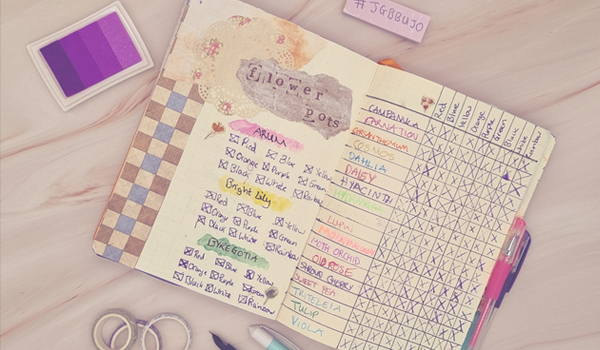 #JGBBUJO
flower
Pots
ARUM
Red Blue Yellow
Orange Purple Green
Black White Rainbow
Bright Lily
Red Blue Yellow
Orange Purple Green
Black White Rainbow
BYREGOTIA
Red Blue Yellow
Orange Purple Green
Black White Rainbow
Red
Blue
Yellow
Orange
Purple
Green
Black
White
Rainbow
CAMPANULA
CARNATION
COSMOS
DAHLIA
DAISY
HYACINTH
LUPIN
MOTH ORCHID
OLD ROSE
SHROUD CHERRY
SWEET PEA
TRITELEIA
TULIP
VIOLA